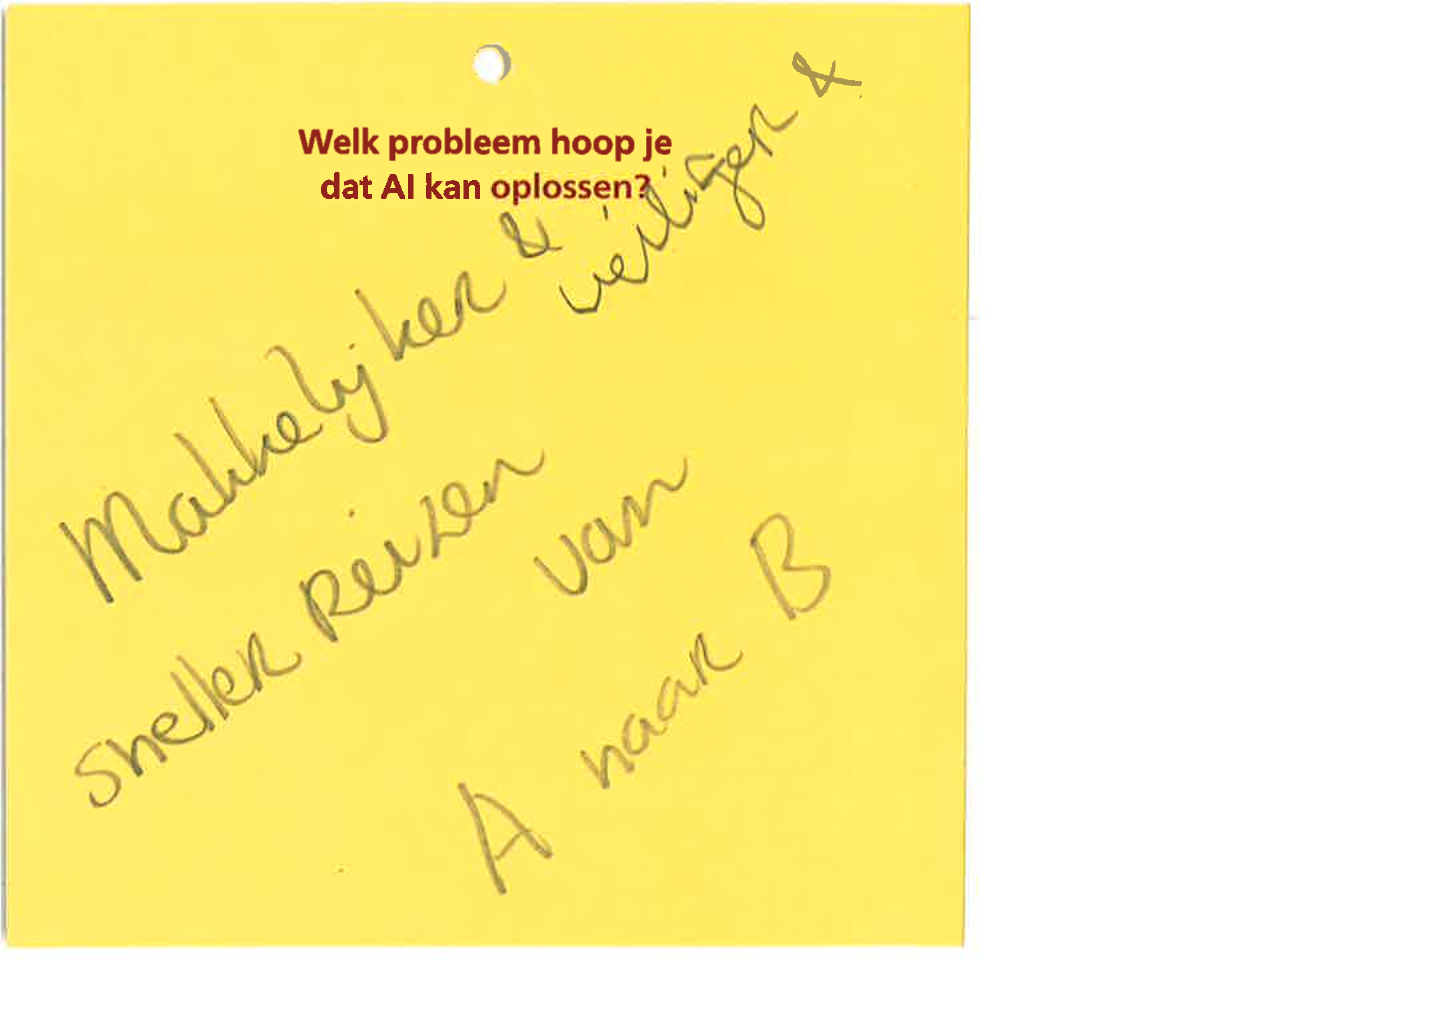 Welk probleem hoop je
dat AI kan oplossen?
Makkelijker & veiliger &
sneller reizen van
A naar B